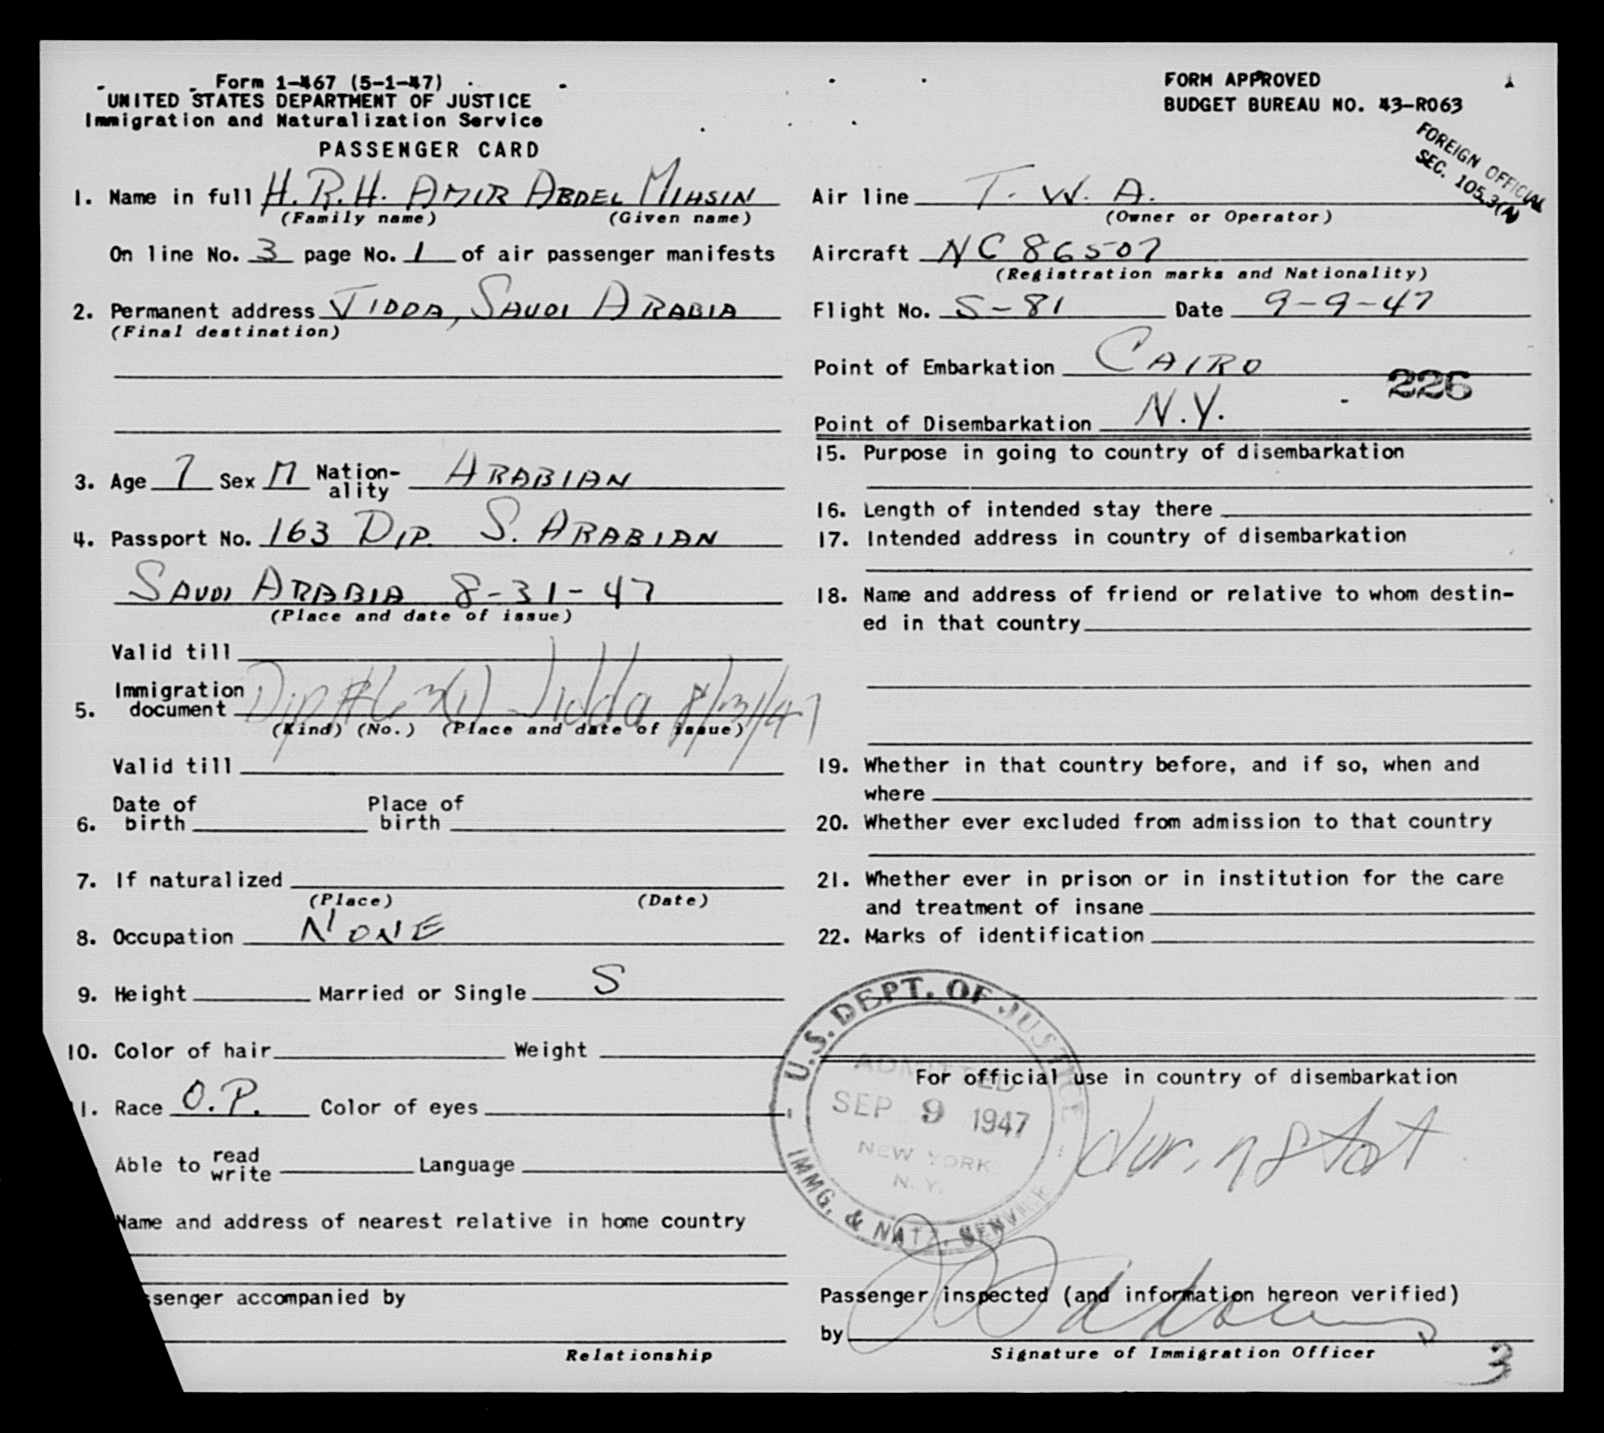 Form 1-467 (5-1-47)
UNITED STATES DEPARTMENT OF JUSTICE
Immigration and Naturalization Service
PASSENGER CARD
FORM APPROVED
BUDGET BUREAU NO. 43-R063
FOREIGN OFFICIAL
SEC. 105.3(A)
1. Name in full H.R.H. AMIR ABDEL MIHSIN
(Family name) (Given name)
On line No. 3 page No. 1 of air passenger manifests
2. Permanent address JIDDA, SAUDI ARABIA
(Final destination)
3. Age 7 Sex M Nation-
ality ARABIAN
4. Passport No. 163 DIP. S. ARABIAN
SAUDI ARABIA 8-31-47
(Place and date of issue)
Valid till
Immigration
5. document Dip Jidda 8/31/47
(Kind) (No.) (Place and date of issue)
Valid till
Date of Place of
6. birth birth
7. If naturalized
(Place) (Date)
8. Occupation NONE
9. Height Married or Single S
10. Color of hair Weight
11. Race O.P. Color of eyes
Able to read
write Language
Name and address of nearest relative in home country
ssenger accompanied by
Relationship
Air line T.W.A.
(Owner or Operator)
Aircraft NC 86507
(Registration marks and Nationality)
Flight No. S-81 Date 9-9-47
Point of Embarkation CAIRO
226
Point of Disembarkation N.Y.
15. Purpose in going to country of disembarkation
16. Length of intended stay there
17. Intended address in country of disembarkation
18. Name and address of friend or relative to whom destin-
ed in that country
19. Whether in that country before, and if so, when and
where
20. Whether ever excluded from admission to that country
21. Whether ever in prison or in institution for the care
and treatment of insane
22. Marks of identification
U.S. DEPT. OF JUSTICE
ADMITTED
SEP 9 1947
NEW YORK
N.Y.
IMMG. & NATZ. SERVICE
For official use in country of disembarkation
Passenger inspected (and information hereon verified)
by
Signature of Immigration Officer
3